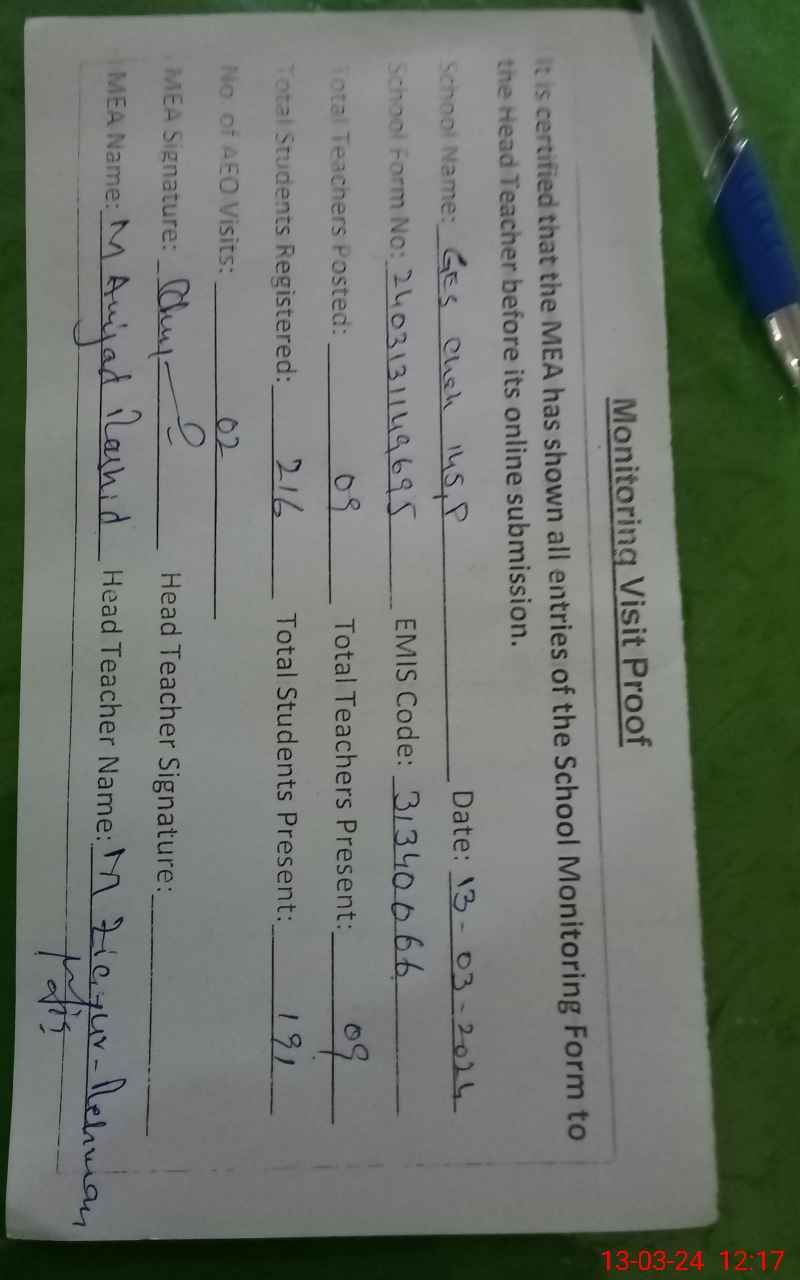 Monitoring Visit Proof
It is certified that the MEA has shown all entries of the School Monitoring Form to
the Head Teacher before its online submission.
School Name: GES Chak 145,P Date: 13-03-2024
School Form No: 2403131149695 EMIS Code: 31340066
Total Teachers Posted: 09 Total Teachers Present: 09
Total Students Registered: 216 Total Students Present: 191
No. of AEO Visits: 02
MEA Signature: Head Teacher Signature:
MEA Name: M Amjad Rashid Head Teacher Name: M Zia-ur-Rehman
13-03-24 12:17